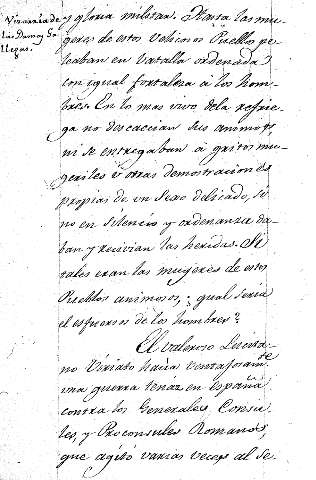 y gloria militar. Hasta las mu-
geres de estos velicosos Pueblos pe-
leaban en vatalla ordenada
con igual fortaleza á los hom-
bres. En lo mas vivo de la refrie-
ga no descaecian sus animos,
ni se entregaban á gritos mu-
geriles ú otras demostraciones
propias de un Sexo delicado, si
no en silencio y ordenanza da-
ban y recivian las heridas. Si
tales eran las mugeres de estos
Pueblos animosos, ¿qual seria
el esfuerzo de los hombres?
El valeroso Lusita-
no Viriato hacia ventajosam.te
una guerra tenaz en España
contra los Generales Consu-
les, y Proconsules Romanos,
que agitó varias veces al Se-